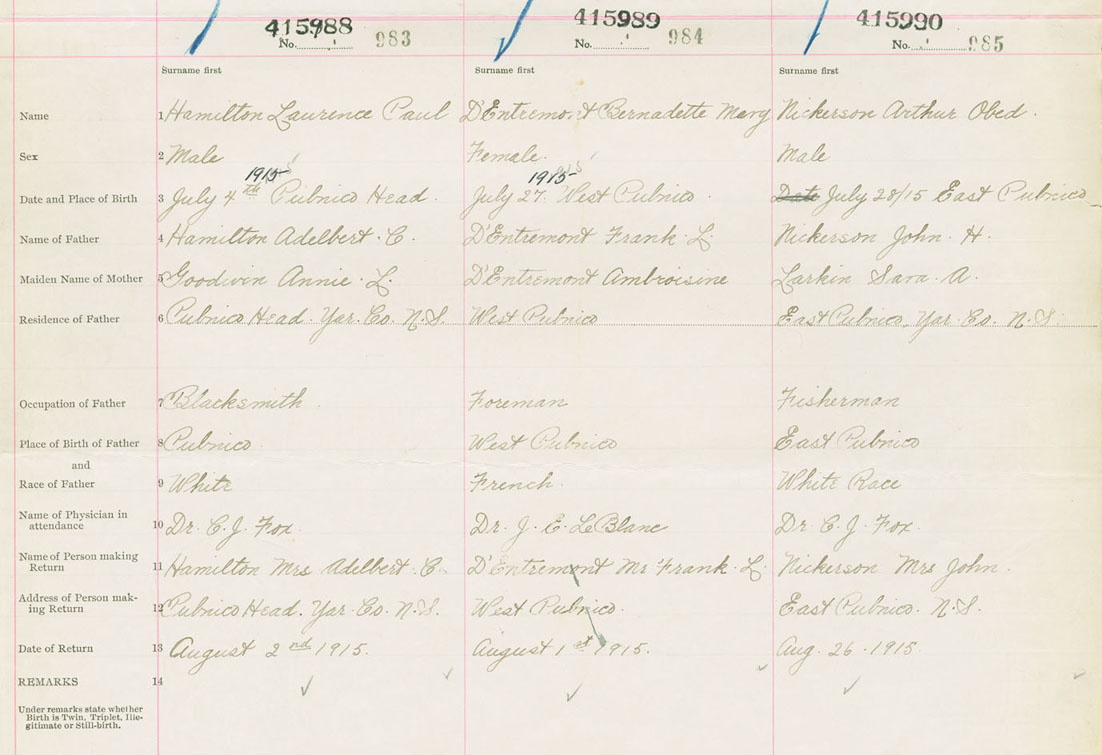 415988 415989 415990
No. 983 No. 984 No. 985
Surname first Surname first Surname first
Name 1 Hamilton Laurence Paul D'Entremont Bernadette Mary Nickerson Arthur Obed.
Sex 2 Male Female. Male
1915 1915
Date and Place of Birth 3 July 4th Pubnico Head. July 27. West Pubnico. Date July 28/15 East Pubnico
Name of Father 4 Hamilton Adelbert. C. D'Entremont Frank. L. Nickerson John. H.
Maiden Name of Mother 5 Goodwin Annie. L. D'Entremont Ambroisine Larkin Sara. A.
Residence of Father 6 Pubnico Head. Yar. Co. N.S. West Pubnico East Pubnico, Yar. Co. N.S.
Occupation of Father 7 Blacksmith Foreman Fisherman
Place of Birth of Father 8 Pubnico West Pubnico East Pubnico
and
Race of Father 9 White French. White Race
Name of Physician in
attendance 10 Dr. C. J. Fox. Dr. J. E. LeBlanc Dr. C. J. Fox.
Name of Person making
Return 11 Hamilton Mrs Adelbert. C. D'Entremont Mr Frank. L. Nickerson Mrs John.
Address of Person mak-
ing Return 12 Pubnico Head. Yar. Co. N.S. West Pubnico. East Pubnico. N.S.
Date of Return 13 August 2nd 1915. August 1st 1915. Aug. 26. 1915
REMARKS 14
Under remarks state whether
Birth is Twin, Triplet, Ille-
gitimate or Still-birth.